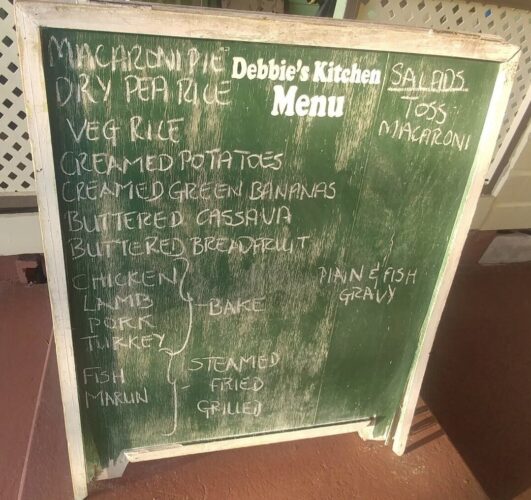 Debbie's Kitchen
Menu
MACARONI PIE
DRY PEA RICE
VEG RICE
CREAMED POTATOES
CREAMED GREEN BANANAS
BUTTERED CASSAVA
BUTTERED BREADFRUIT
CHICKEN
LAMB
PORK
TURKEY
BAKE
FISH
MARLIN
STEAMED
FRIED
GRILLED
SALADS
TOSS
MACARONI
PLAIN & FISH
GRAVY